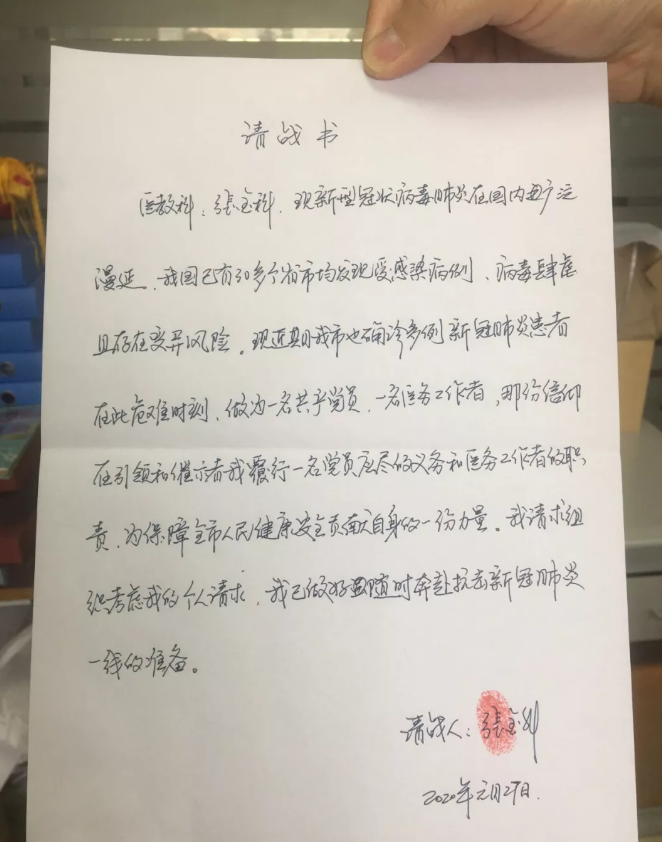 请战书
医教科:张宝科,现新型冠状病毒肺炎在国内由广泛
漫延,我国已有30多个省市均发现受感染病例、病毒肆虐
且存在变异风险。现近期我市也确诊多例新冠肺炎患者
在此危难时刻,做为一名共产党员,一名医务工作者,那份信仰
在引领和催示者我履行一名党员应尽的义务和医务工作者的职
责,为保障全市人民健康安全贡献自身的一份力量。我请求组
织考虑我的个人请求,我已做好随时奔赴抗击新冠肺炎
一线的准备。
请战人:张宝科
2020年元月27日.